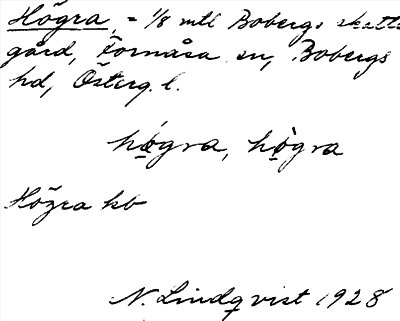 Högra, = 1/8 mtl Bobergs skatte
gård, Fornåsa sn, Bobergs
hd, Österg. l.
hö́gra, hö̀gra
Högra kb
N. Lindqvist 1928